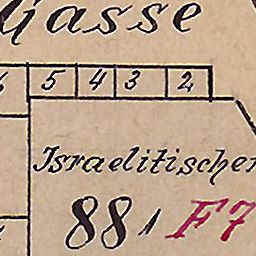 Gasse
5 4 3 2
Israelitischer
881 F7